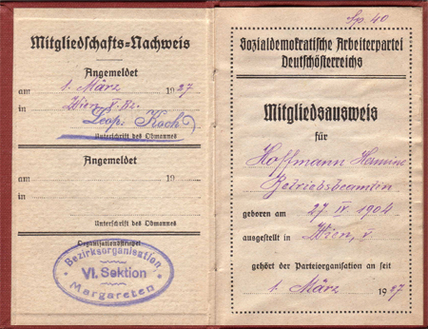 Mitgliedschafts-Nachweis
Angemeldet
am 1. März 1927
in Wien V. Bz.
Leop. Koch
Unterschrift des Obmannes
Angemeldet
am 19
in
Unterschrift des Obmannes
Organisationsstempel
Bezirksorganisation
VI. Sektion
Margareten
Sp. 40
Sozialdemokratische Arbeiterpartei
Deutschösterreichs
Mitgliedsausweis
für
Hoffmann Hermine
Betriebsbeamtin
geboren am 27. IV 1904
ausgestellt in Wien, V.
gehört der Parteiorganisation an seit
1. März 1927